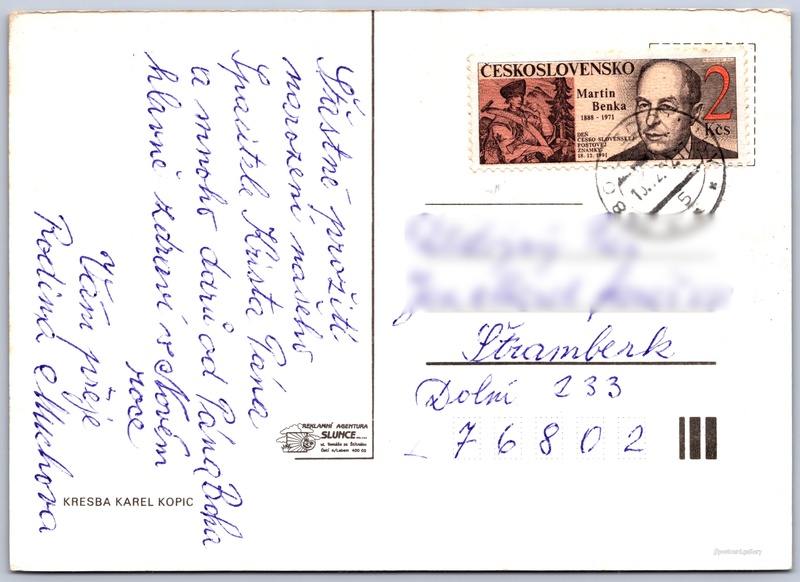 Šťastné prožití
narození našeho
Spasitele Krista Pána
a mnoho darů od Pána Boha
hlavně zdraví v Novém
roce
Vám přeje
Rodina Muchova
KRESBA KAREL KOPIC
REKLAMNÍ AGENTURA
SLUNCE
ul. Tomáše ze Štítného
Ústí n/Labem 400 02
ČESKOSLOVENSKO
Martin
Benka
1888 - 1971
DEN
ČESKO SLOVENSKEJ
POŠTOVEJ
ZNÁMKY
18. 12. 1991
2
Kčs
Štramberk
Dolní 233
76802
postcard.gallery